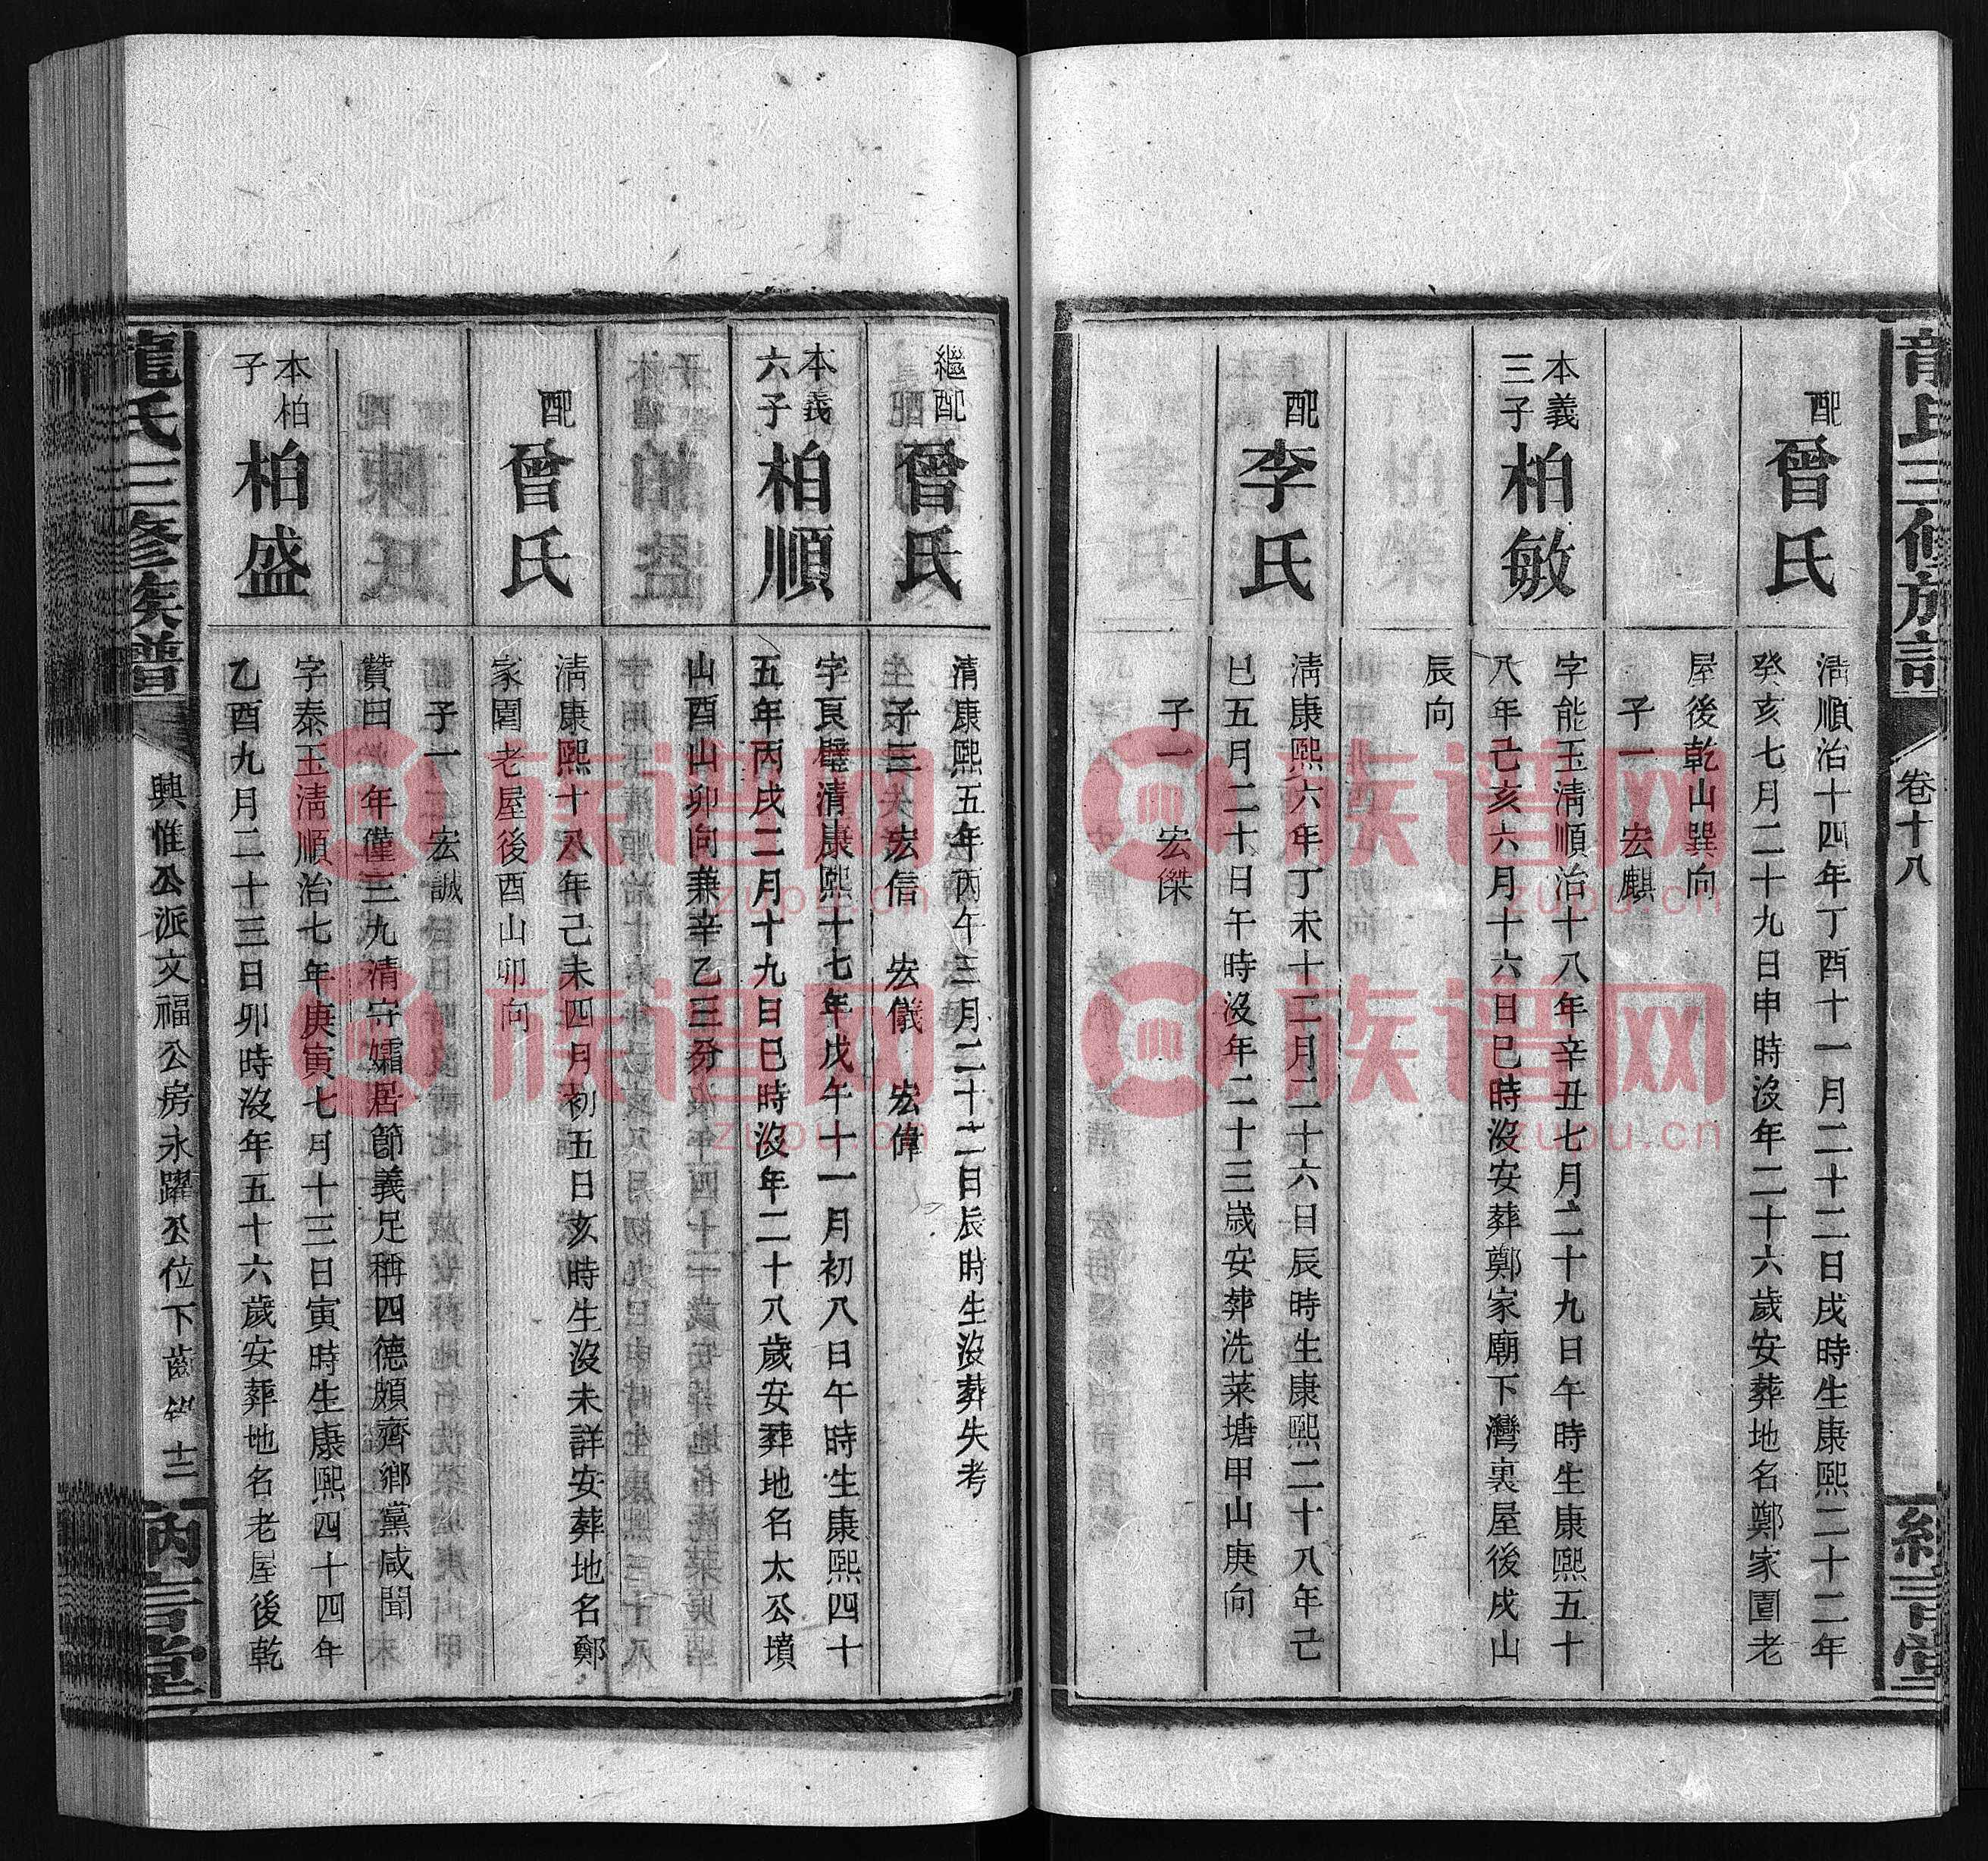 龍氏三修族譜
卷十八
配
曾氏
清順治十四年丁酉十一月二十二日戌時生康熙二十二年
癸亥七月二十九日申時沒年二十六歲安葬地名鄭家園老
屋後乾山巽向
子一 宏麒
本義
三子
柏敏
字能玉清順治十八年辛丑七月二十九日午時生康熙五十
八年己亥六月十六日巳時沒安葬鄭家廟下灣裏屋後戌山
辰向
配
李氏
清康熙六年丁未十二月二十六日辰時生康熙二十八年己
巳五月二十日午時沒年二十三歲安葬洗菜塘甲山庚向
子一 宏傑
繼配
曾氏
清康熙五年丙午三月二十二日辰時生沒葬失考
子三 宏信 宏儀 宏偉
本義
六子
柏順
字良璧清康熙十七年戊午十一月初八日午時生康熙四十
五年丙戌二月十九日巳時沒年二十八歲安葬地名太公墳
山酉山卯向兼辛乙三分
配
曾氏
清康熙十八年己未四月初五日亥時生沒未詳安葬地名鄭
家園老屋後酉山卯向
子一 宏誠
贊曰 年僅三九清守孀居節義足稱四德頗齊鄉黨咸聞
本柏
子
柏盛
字泰玉清順治七年庚寅七月十三日寅時生康熙四十四年
乙酉九月二十三日卯時沒年五十六歲安葬地名老屋後乾
龍氏三修族譜
興惟公派文福公房永躍公位下齒錄 十二
納言堂
族谱网
zupu.cn
族谱网
zupu.cn
族谱网
zupu.cn
族谱网
zupu.cn